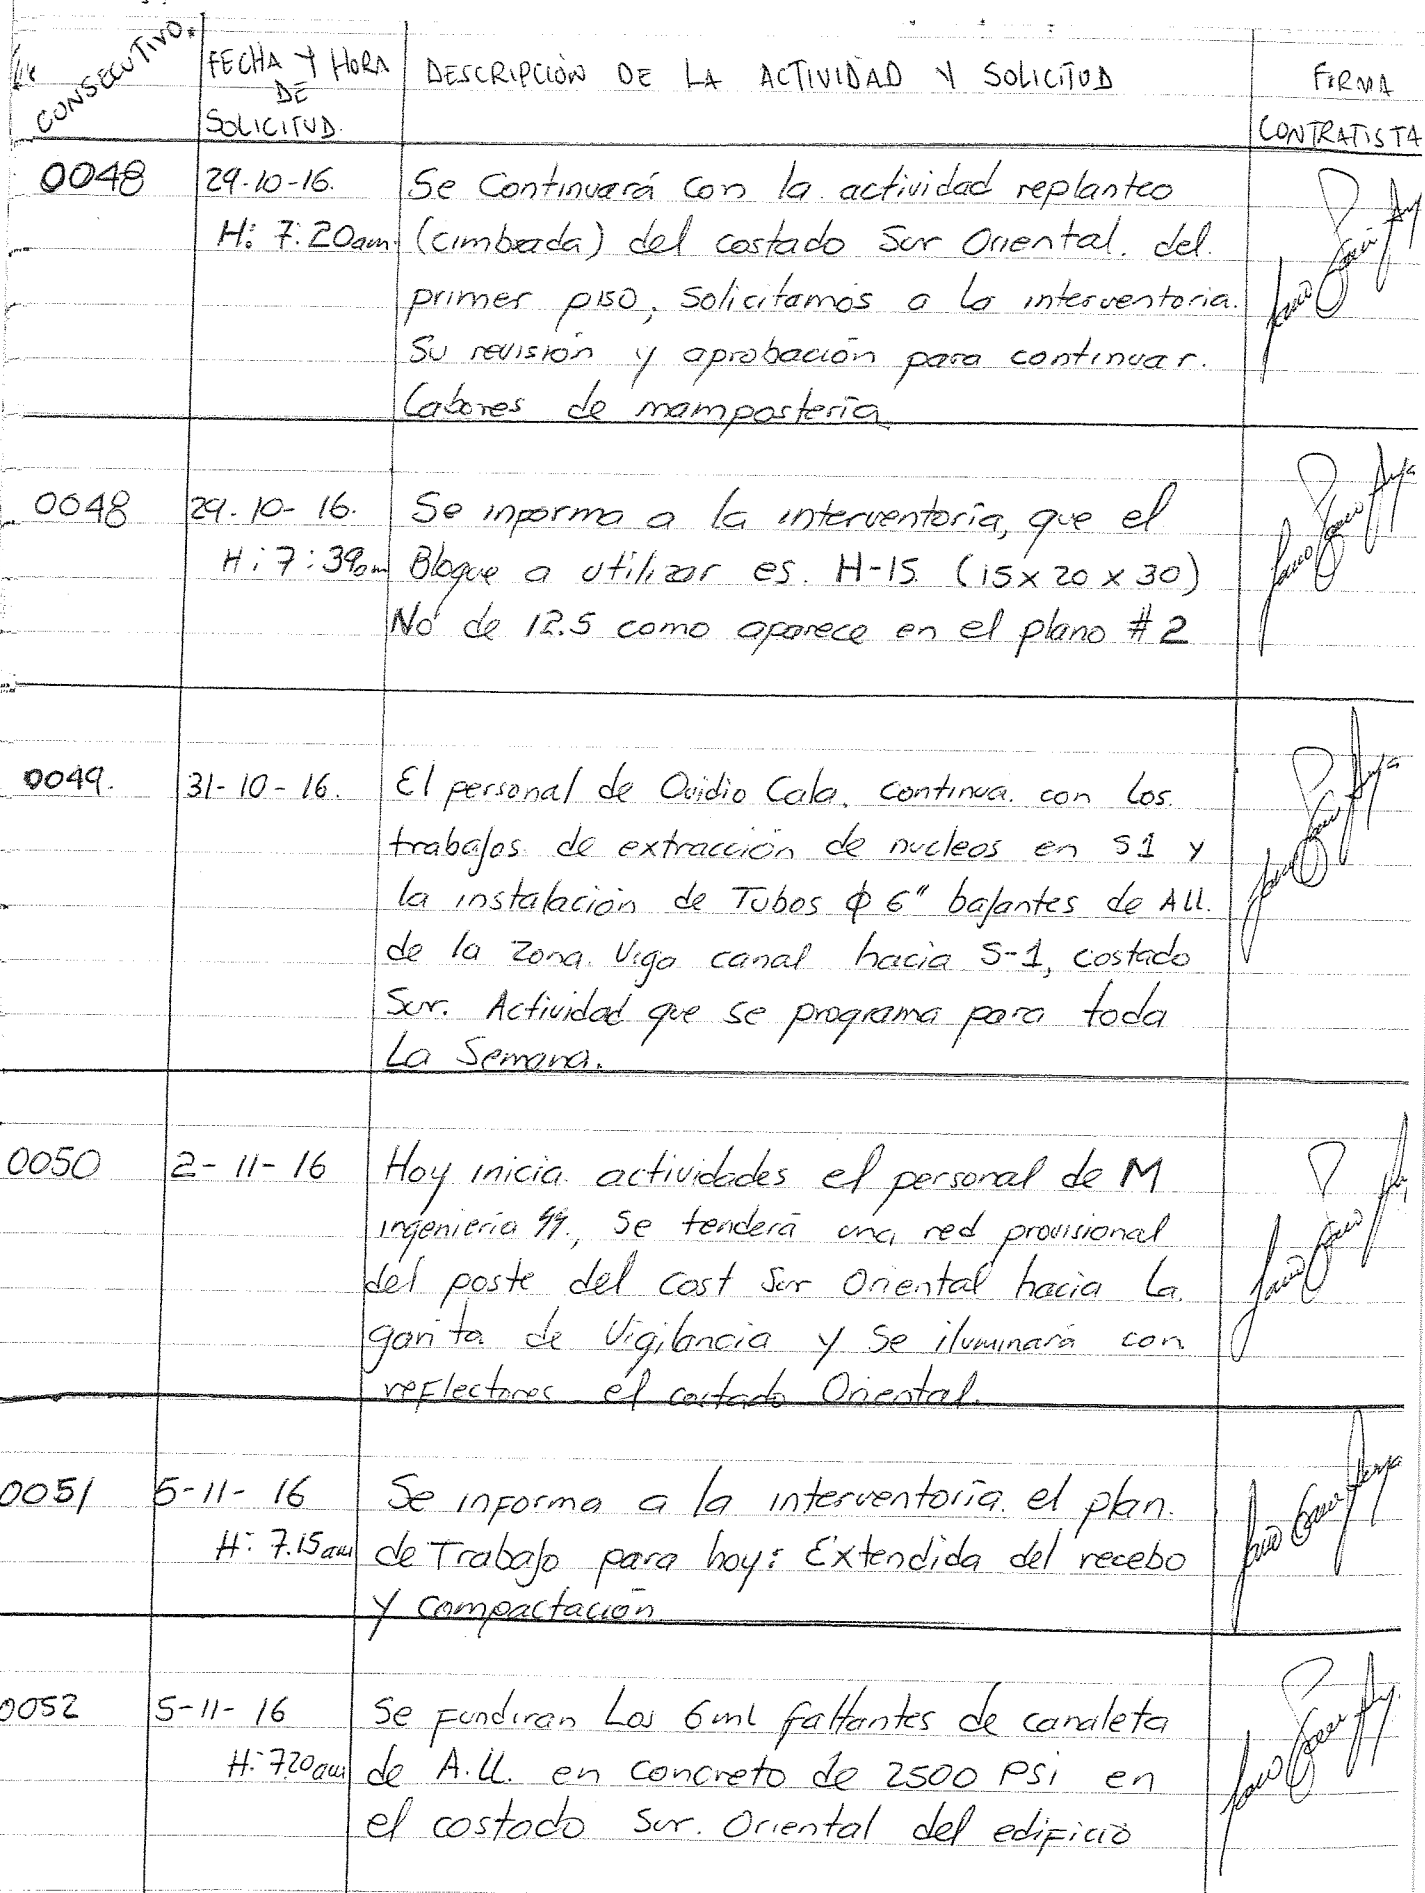 CONSECUTIVO.
FECHA Y HORA
DE
SOLICITUD.
DESCRIPCIÓN DE LA ACTIVIDAD Y SOLICITUD
FIRMA
CONTRATISTA
0048
29-10-16.
H: 7:20am.
Se Continuará con la actividad replanteo
(cimbrada) del costado Sur Oriental. del.
primer piso, Solicitamos a la interventoria.
Su revisión y aprobación para continuar.
Labores de mampostería
0048
29-10-16.
H: 7:39am
Se informa a la interventoría, que el
Bloque a utilizar es. H-15 (15x20x30)
No de 12.5 como aparece en el plano #2
0049.
31-10-16.
El personal de Ovidio Cala. continua. con los.
trabajos de extracción de nucleos en S1 y
la instalación de Tubos ϕ 6" bajantes de A.LL.
de la zona. Viga canal hacia S-1, costado
Sur. Actividad que se programa para toda
La Semana.
0050
2-11-16
Hoy inicia. actividades el personal de M
ingeniería, Se tenderá una red provisional
del poste del cost Sur Oriental hacia la
garita de Vigilancia y se iluminará con
reflectores el costado Oriental.
0051
5-11-16
H: 7.15am
Se informa a la interventoría. el plan.
de Trabajo para hoy: Extendida del recebo
y compactación
0052
5-11-16
H: 7.20am
Se fundiran Los 6ml faltantes de canaleta
de A.LL. en concreto de 2500 PSi en
el costado Sur. Oriental del edificio